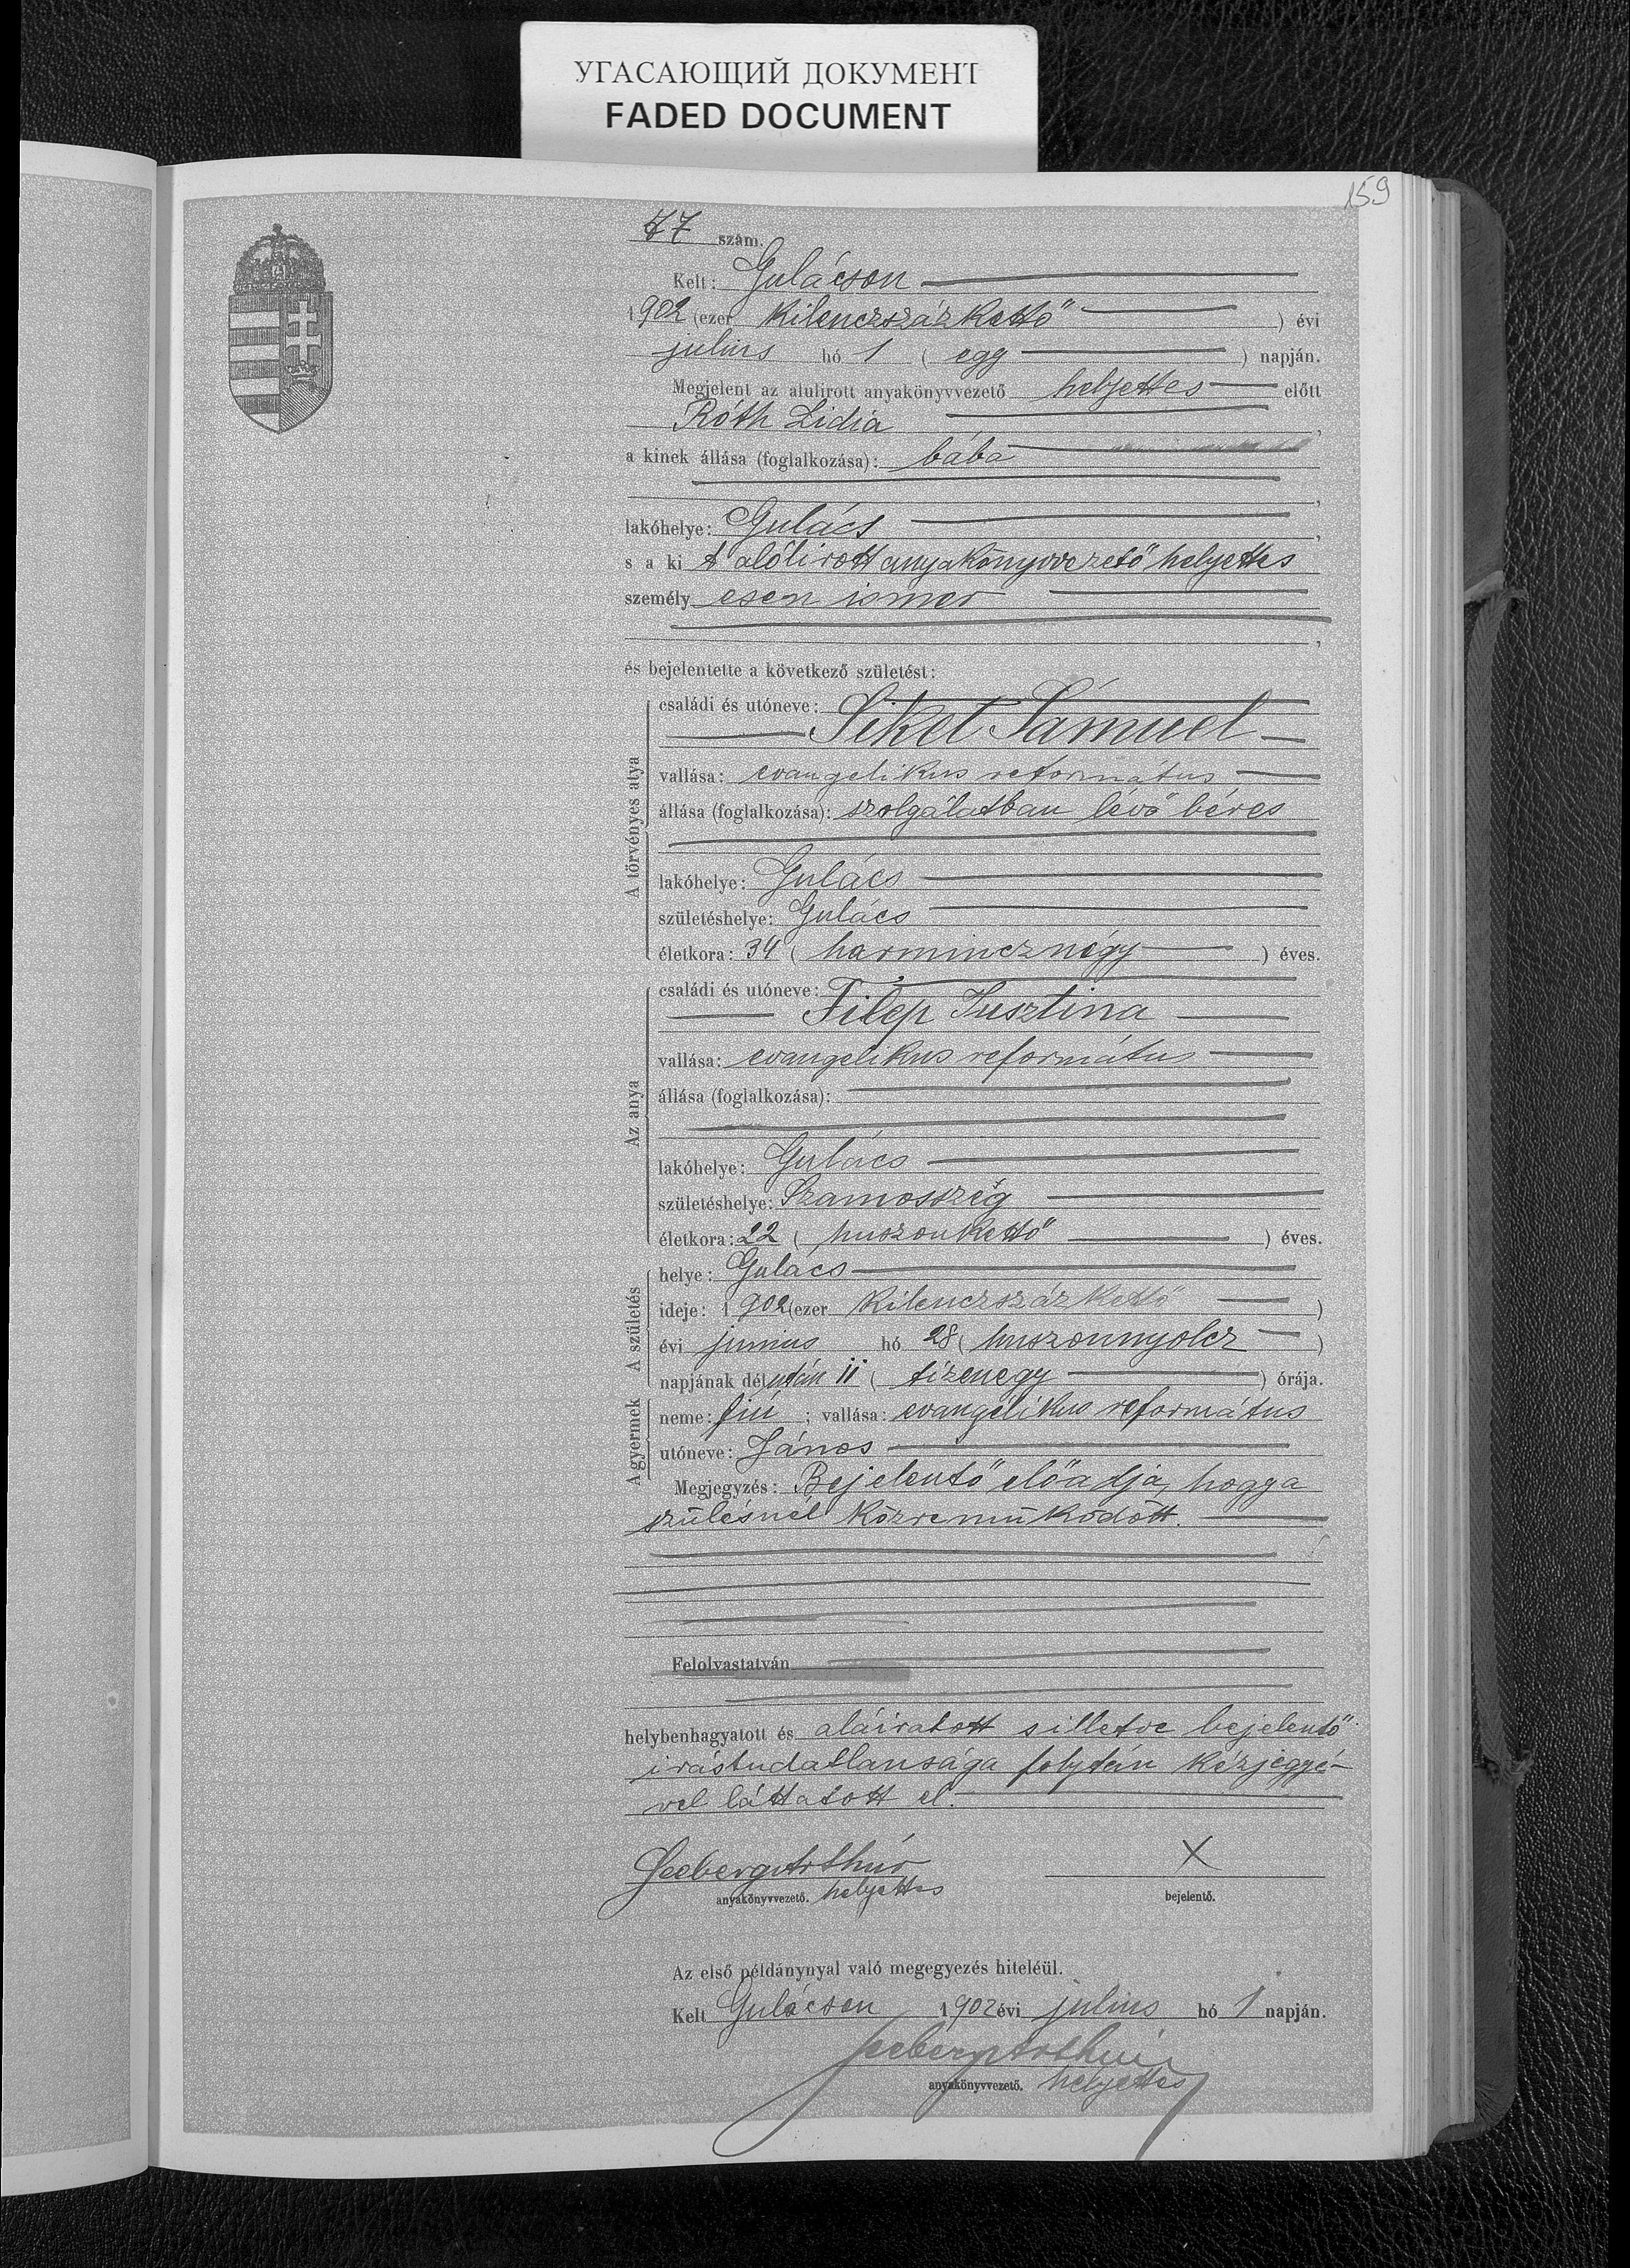 УГАСАЮЩИЙ ДОКУМЕНТ
FADED DOCUMENT
159
77 szám.
Kelt: Gulácson
1902 (ezer kilenczszázkettő) évi
julius hó 1 (egy) napján.
Megjelent az alulirott anyakönyvvezető helyettes előtt
Róth Lidia,
a kinek állása (foglalkozása): bába
,
lakóhelye: Gulács,
s a ki t alólirott anyakönyvvezető helyettes
személy esen ismer
,
és bejelentette a következő születést:
A törvényes atya
családi és utóneve:
Siket Sámuel
vallása: evangelikus református
állása (foglalkozása): szolgálatban lévő béres
lakóhelye: Gulács
születéshelye: Gulács
életkora: 34 (harmincznégy) éves.
Az anya
családi és utóneve:
Filep Jusztina
vallása: evangelikus református
állása (foglalkozása):
lakóhelye: Gulács
születéshelye: Szamosszeg
életkora: 22 (huszonkettő) éves.
A születés
helye: Gulács
ideje: 1902 (ezer kilenczszázkettő)
évi junius hó 28 (huszonnyolcz)
napjának délután 11 (tizenegy) órája.
A gyermek
neme: fiú; vallása: evangélikus református
utóneve: János
Megjegyzés: Bejelentő előadja, hogy a
szülésnél közreműködött.
Felolvastatván
helybenhagyatott és aláiratott s illetve bejelentő
irástudatlansága folytán kézjegyé-
vel láttatott el.
Seeberg Arthúr
anyakönyvvezető. helyettes
X
bejelentő.
Az első példánynyal való megegyezés hiteléül.
Kelt Gulácson 1902 évi julius hó 1 napján.
Seeberg Arthúr
anyakönyvvezető. helyettes